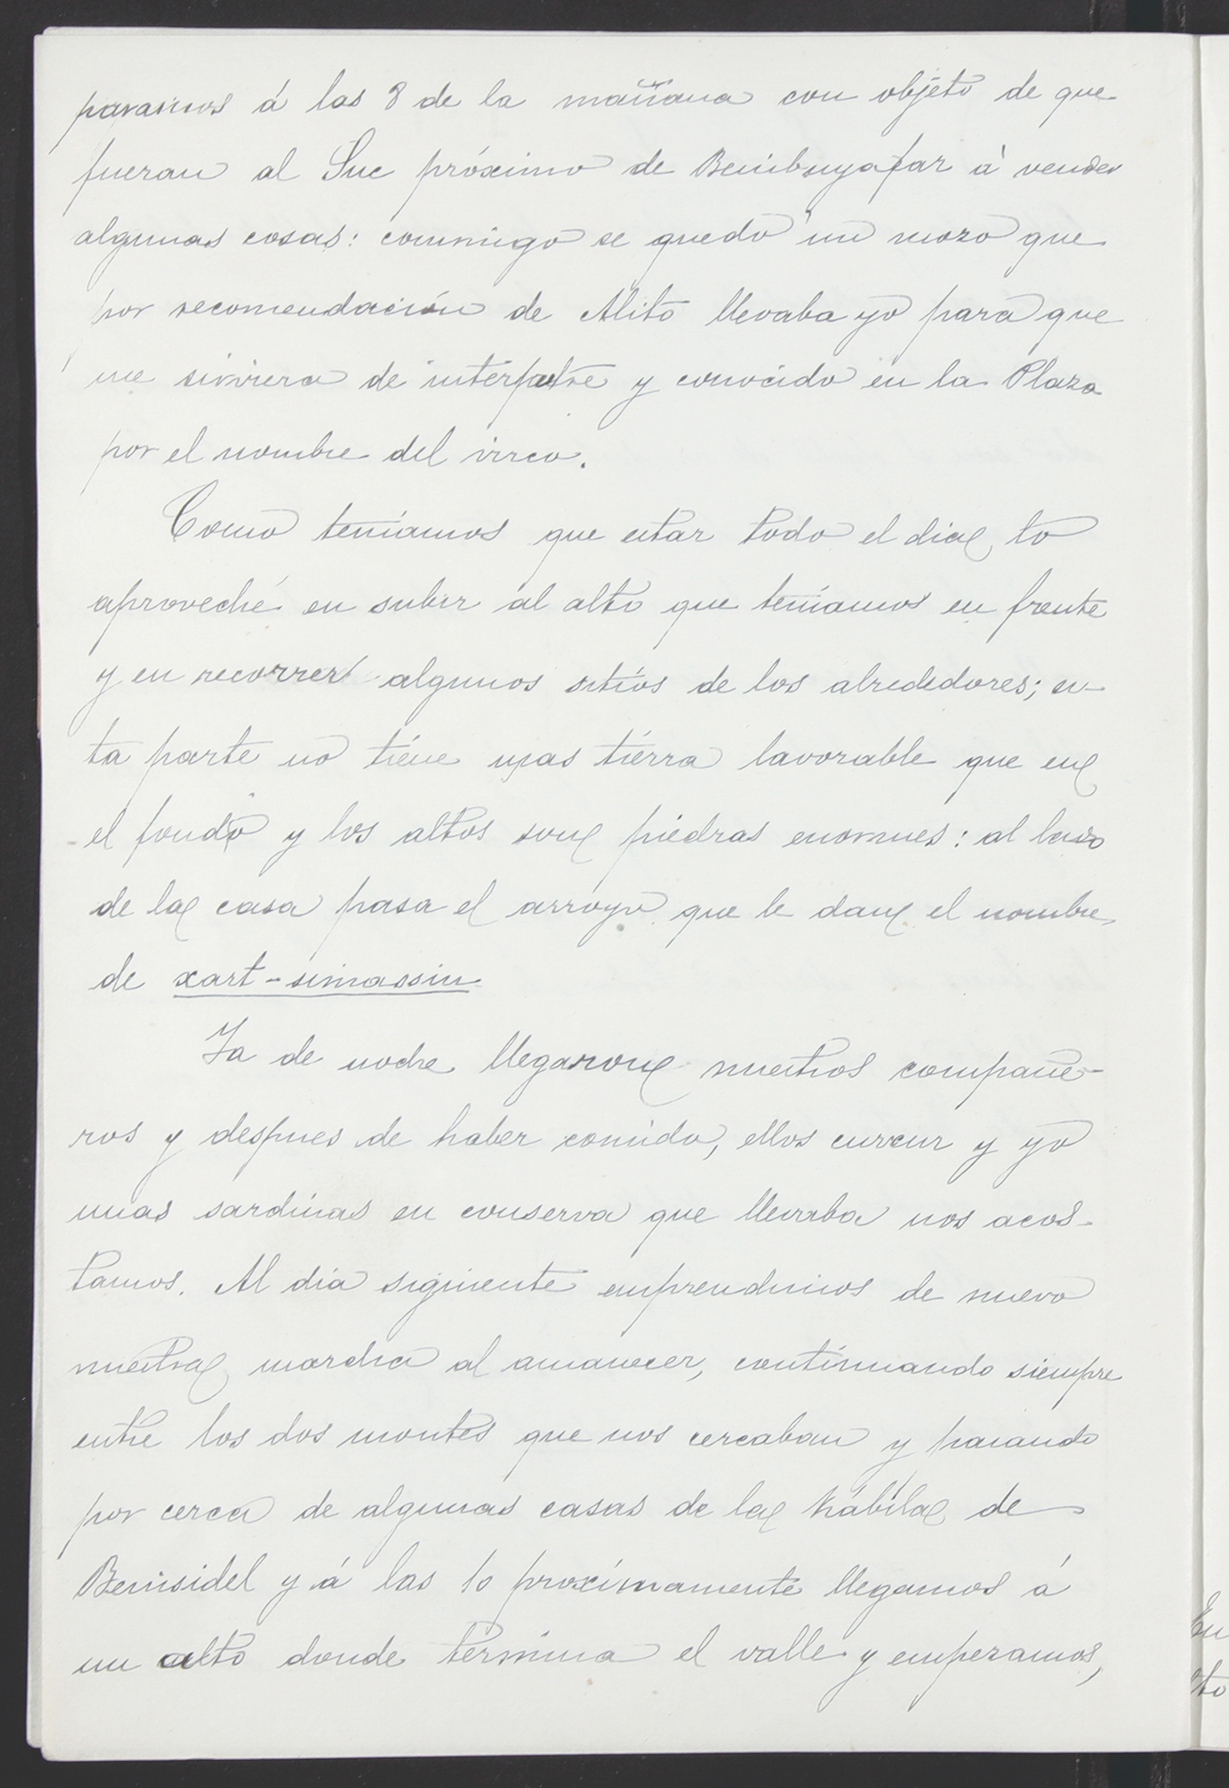 pararnos á las 8 de la mañana con objeto de que
fueran al Suc próximo de Benibuyafar á vender
algunas cosas: conmigo se quedó un mozo que
por recomendación de Alito llevaba yo para que
me sirviera de interpetre y conocido en la Plaza
por el nombre del virco.
Como teníamos que estar todo el dia, lo
aproveché en subir al alto que teníamos en frente
y en recorrer algunos sitios de los alrededores; es-
ta parte no tiene mas tierra lavorable que en
el fondo y los altos son piedras enormes: al lado
de la casa pasa el arroyo que le dan el nombre
de xart-simassin
Ya de noche llegaron nuestros compañe-
ros y despues de haber comido, ellos curcur y yo
unas sardinas en conserva que llevaba nos acos-
tamos. Al dia siguiente emprendimos de nuevo
nuestra marcha al amanecer, continuando siempre
entre los dos montes que nos cercaban y pasando
por cerca de algunas casas de la kábila de
Benisidel y á las 10 proximamente llegamos á
un alto donde termina el valle y empezamos,